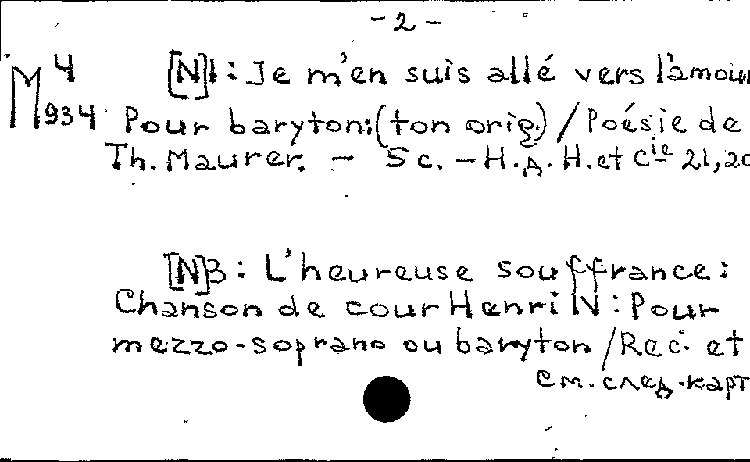 - 2 -
M 4 [N]1: Je m'en suis allé vers l'amour
934 Pour baryton: (ton orig.) / Poésie de
Th. Maurer. - S c. - H.д. H. et Cie 21,20
[N]3: L'heureuse souffrance:
Chanson de cour Henri IV: Pour
mezzo-soprano ou baryton / Rec. et
См. след. карт